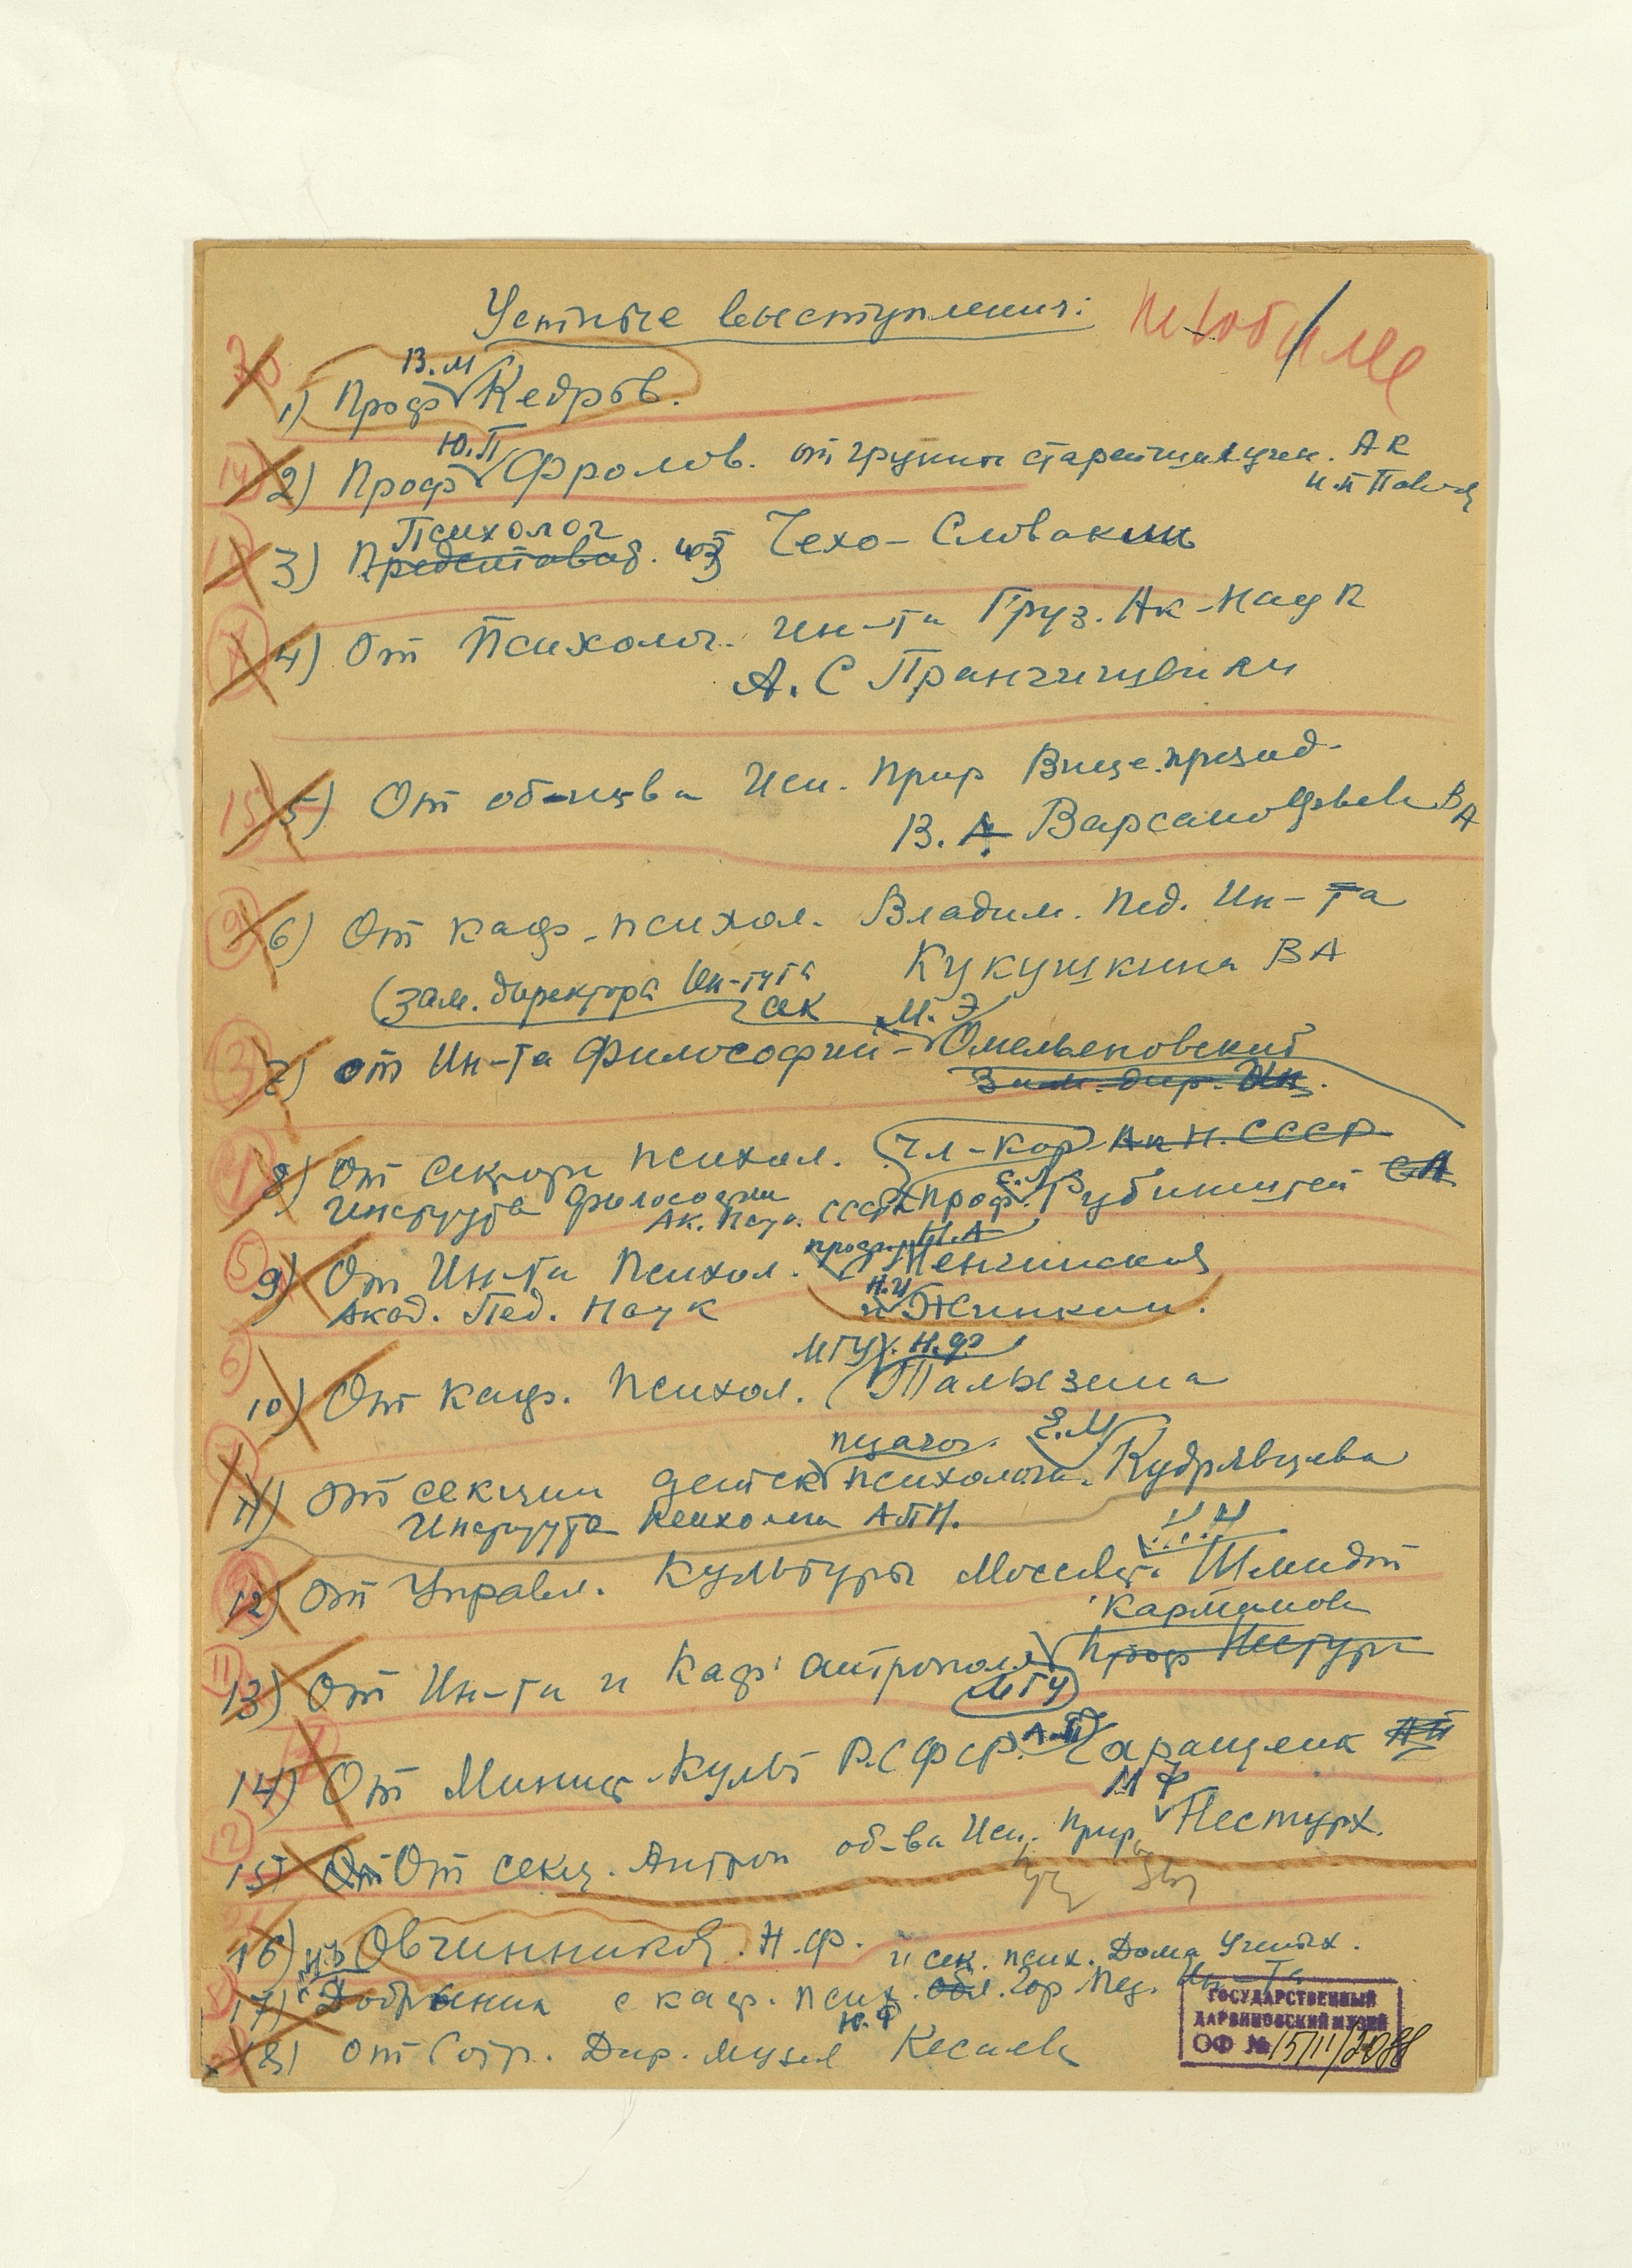 Устные выступления:
В.М
1) Проф Кедров.
Ю.П
2) Проф Фролов. от группы старейших учен. АК
И.П Павлов
Психолог
3) Представит. из Чехо-Словакии
4) От Психолог. Ин-та Груз. Ак-Наук
А.С Прангишвили
15 5) От об-щтва Исп. Прир Вице.презид-
В. А Варсанофьева ВА
9 6) От каф. психол. Владим. Пед. Ин-та
Кукушкина ВА
(Зам. директора Ин-тута
М.Э
3 7) от Ин-та Философии - Омельяновский
Зам. дир. Ин.
8) От Сектора психол. Чл-Кор Ак Н. СССР
С.Л
Института Философии Проф. Рубинштейн СЛ
Ак. Наук. СССР
проф. Н.А
5 9) От Ин-та Психол. Менчинская
Н.И
Акад. Пед. Наук и Жинкин.
МГУ Н.Ф
6 10) От каф. Психол. Талызина
педагог. Е.М
11) От секции детск психологии. Кудрявцева
Института Психологии АПН.
12) От Управл. Культуры Моссовета Шмидт
Карташов
11 13) От Ин-та и Каф антропол. Проф Нестурх
МГУ
А.П
14) От Минист. Культ РСФСР. Саращеик АП
М Ф
12 15) От От секц. Антроп об-ва Исп. Прир Нестурх.
16) Овчинников. Н.Ф.
и сек. псих. Дома Ученых.
17) Добрынин с каф. псих. Обл. Гор Пед. Ин-та
Ю.Ф
18) От Сотр. Дар. музея Кесаев
ГОСУДАРСТВЕННЫЙ
ДАРВИНОВСКИЙ МУЗЕЙ
ОФ №